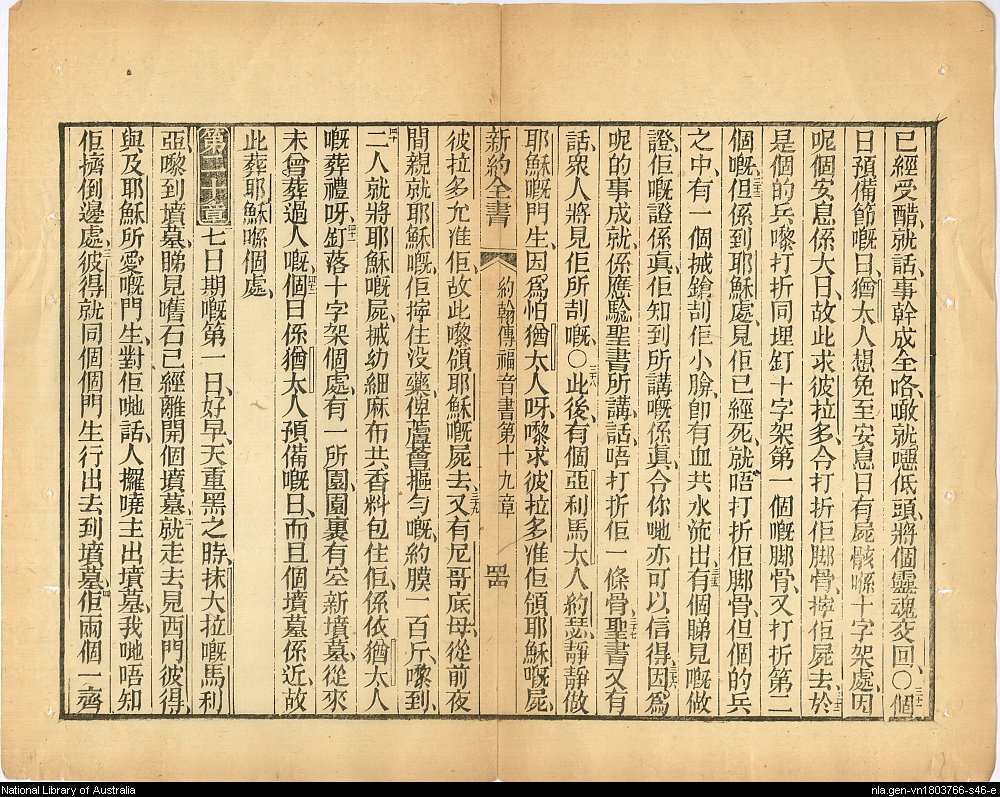 已經受醋、就話、事幹成全咯、噉就𠹌低頭、將個靈魂交回、〇個
三十一
日預備節嘅日、猶太人想免至安息日有屍骸喺十字架處、因
呢個安息係大日、故此求彼拉多、令打折佢脚骨、擰佢屍去、於
三十二
是個的兵嚟打折同埋釘十字架第一個嘅脚骨、又打折第二
個嘅、但係到耶穌處、見佢已經死、就唔打折佢脚骨、但個的兵
三十三
之中、有一個揻鎗刮佢小脥、卽有血共水流出、有個睇見嘅做
三十五
證、佢嘅證係眞、佢知到所講嘅係眞、令你哋亦可以信得、因爲
三十六
呢的事成就、係應騐聖書所講、話、唔打折佢一條骨、聖書又有
三十七
話、衆人將見佢所刮嘅、〇此後、有個亞利馬太人約瑟、靜靜做
三十八
耶穌嘅門生、因爲怕猶太人呀、嚟求彼拉多准佢領耶穌嘅屍、
新約全書 約翰傳福音書第十九章 四四
彼拉多允准佢、故此嚟領耶穌嘅屍去、又有尼哥底母、從前夜
三十九
間親就耶穌嘅、佢擰住没藥、俾蘆薈摳勻嘅、約膜一百斤、嚟到、
二人就將耶穌嘅屍、揻幼細麻布共香料包住佢、係依猶太人
四十
嘅葬禮呀、釘落十字架個處、有一所園、園裏有空新墳墓、從來
四十一
未曾葬過人嘅、個日係猶太人預備嘅日、而且個墳墓係近、故
四十二
此葬耶穌喺個處、
第二十章 七日期嘅第一日、好早、天重黑之時、抹大拉嘅馬利
亞、嚟到墳墓、睇見舊石已經離開個墳墓、就走去見西門彼得、
二
與及耶穌所愛嘅門生、對佢哋話、人攞嘵主出墳墓、我哋唔知
佢擠倒邊處、彼得就同個個門生行出去到墳墓、佢兩個一齊
三
四